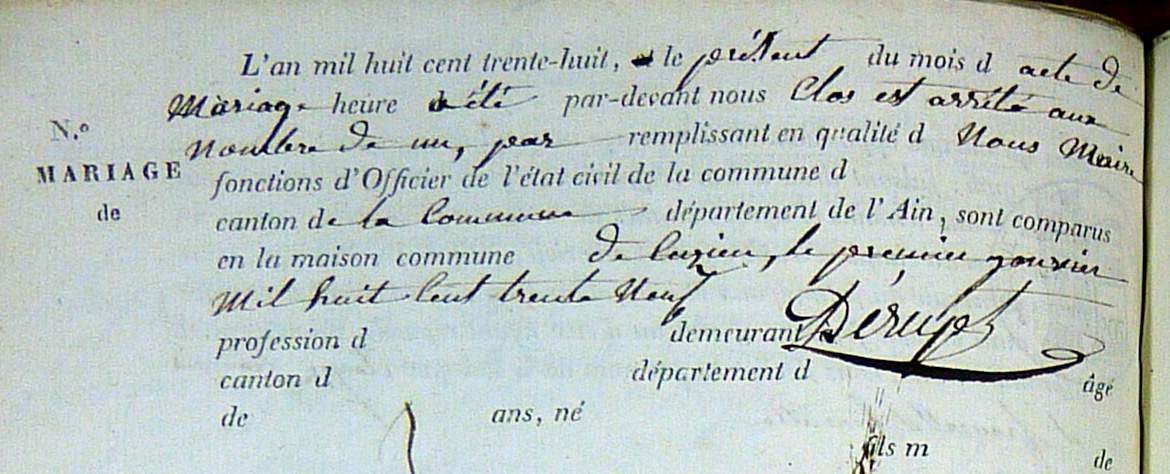 L'an mil huit cent trente-huit, le présent du mois d acte de
Mariage heure a été par-devant nous Clos est arrêté aux
N.º nombre de un, par remplissant en qualité d Nous Maire
MARIAGE fonctions d'Officier de l'état civil de la commune d
de canton de la Commune département de l'Ain, sont comparus
en la maison commune de Luzieu, le premier janvier
Mil huit Cent trente Neuf
profession d demeurant à Dérujet
canton d département d âgé
de ans, né
fils m de